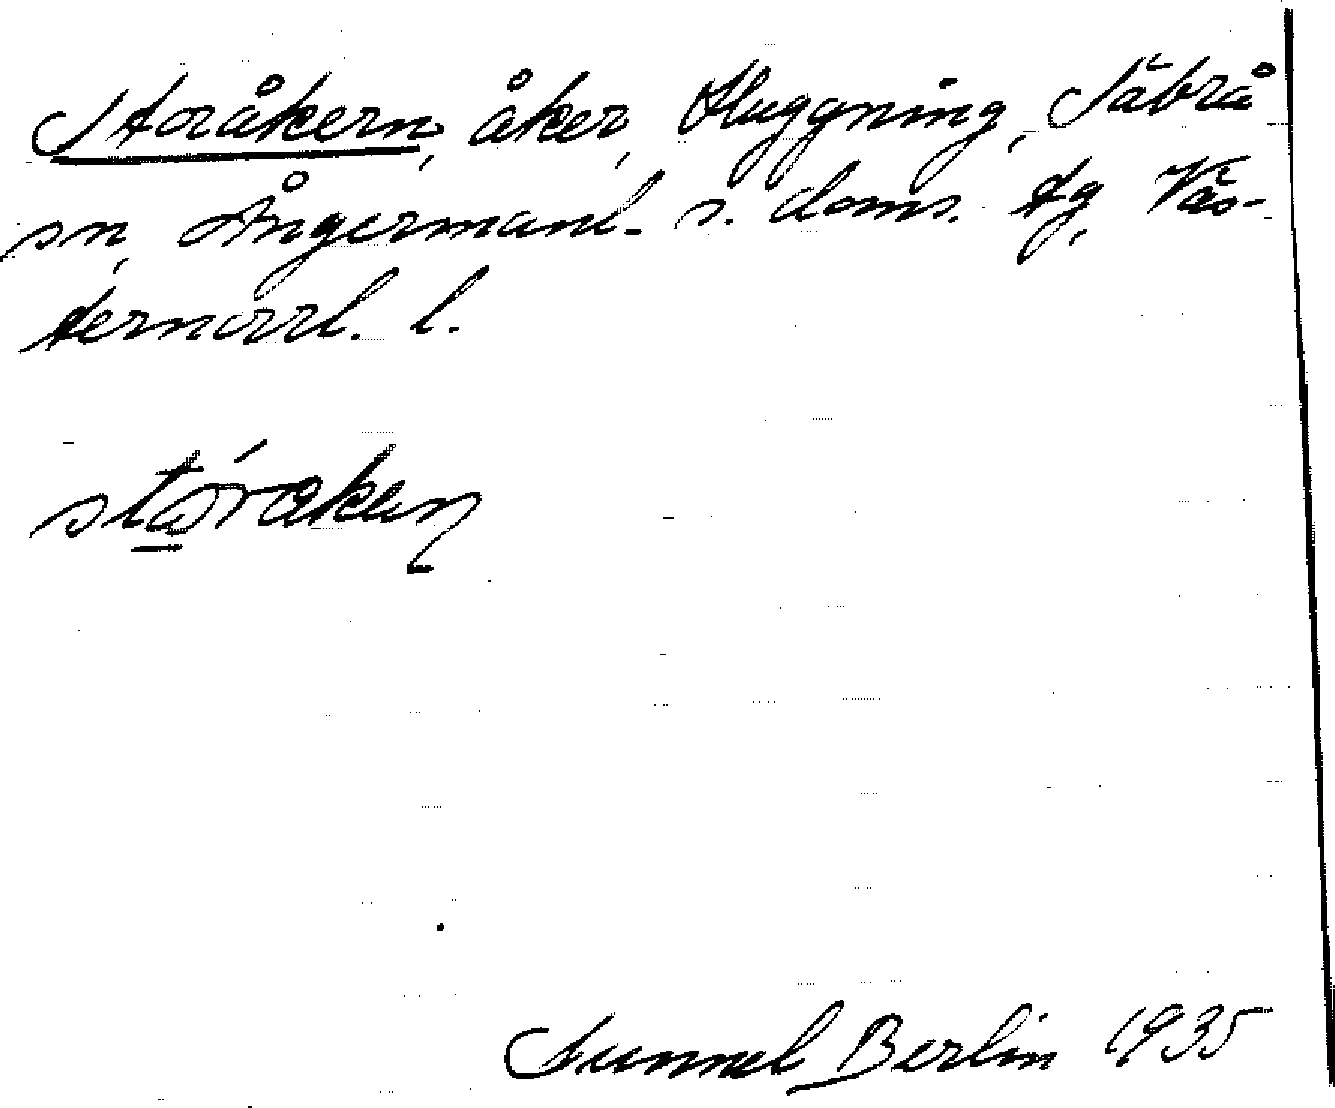 Storåkern, åker, Huggning, Säbrå
sn, Ångermanl. s. doms. tg, Väs-
ternorrl. l.
stóraken
Gunnel Berlin 1935